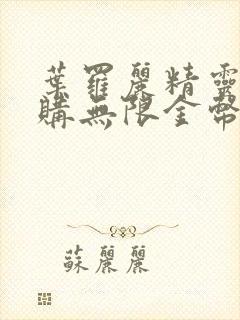 葉羅麗精靈
購無限金幣
蘇麗麗